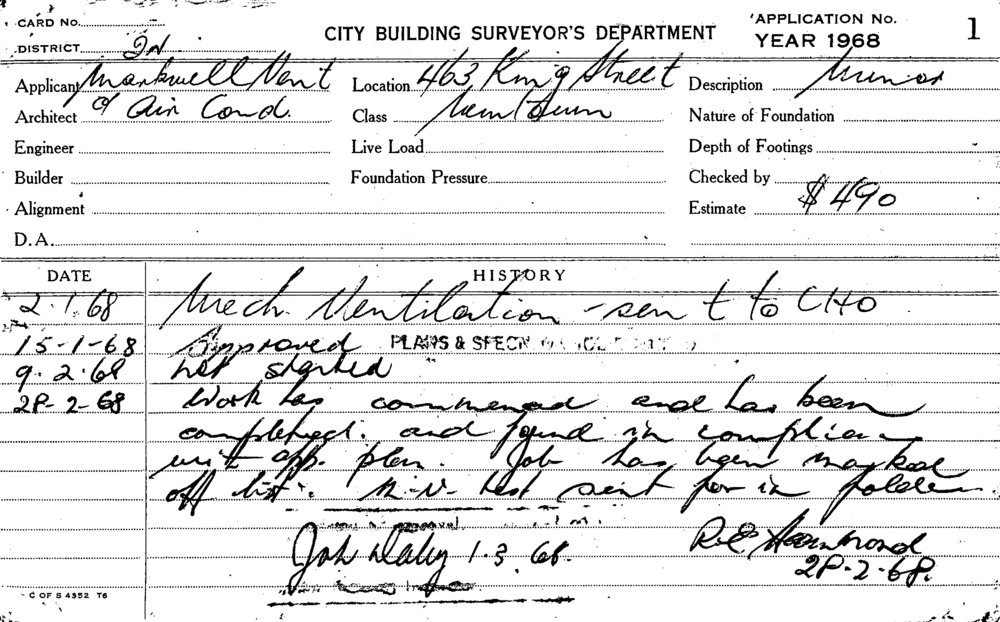 CARD No.
'APPLICATION No.
1
DISTRICT
CITY BUILDING SURVEYOR'S DEPARTMENT
YEAR 1968
Applicant Markwell Vent
Location 463 King Street
Description Minor
Architect & Air Cond.
Class Newtown
Nature of Foundation
Engineer
Live Load
Depth of Footings
Builder
Foundation Pressure
Checked by
Alignment
Estimate $490
D.A.
DATE
HISTORY
2.1.68 Mech. Ventilation - sent to CHO
15-1-68 Approved PLANS & SPECN
9.2.68 Not started
28-2-68 Work has commenced and has been
completed. and found in complian
wit app. plan. Job has been marked
off list. M-V- test sent for in folder
approval
John Daley 1.3.68.
R.E. Hammond
28.2.68.
C OF S 4352 T6